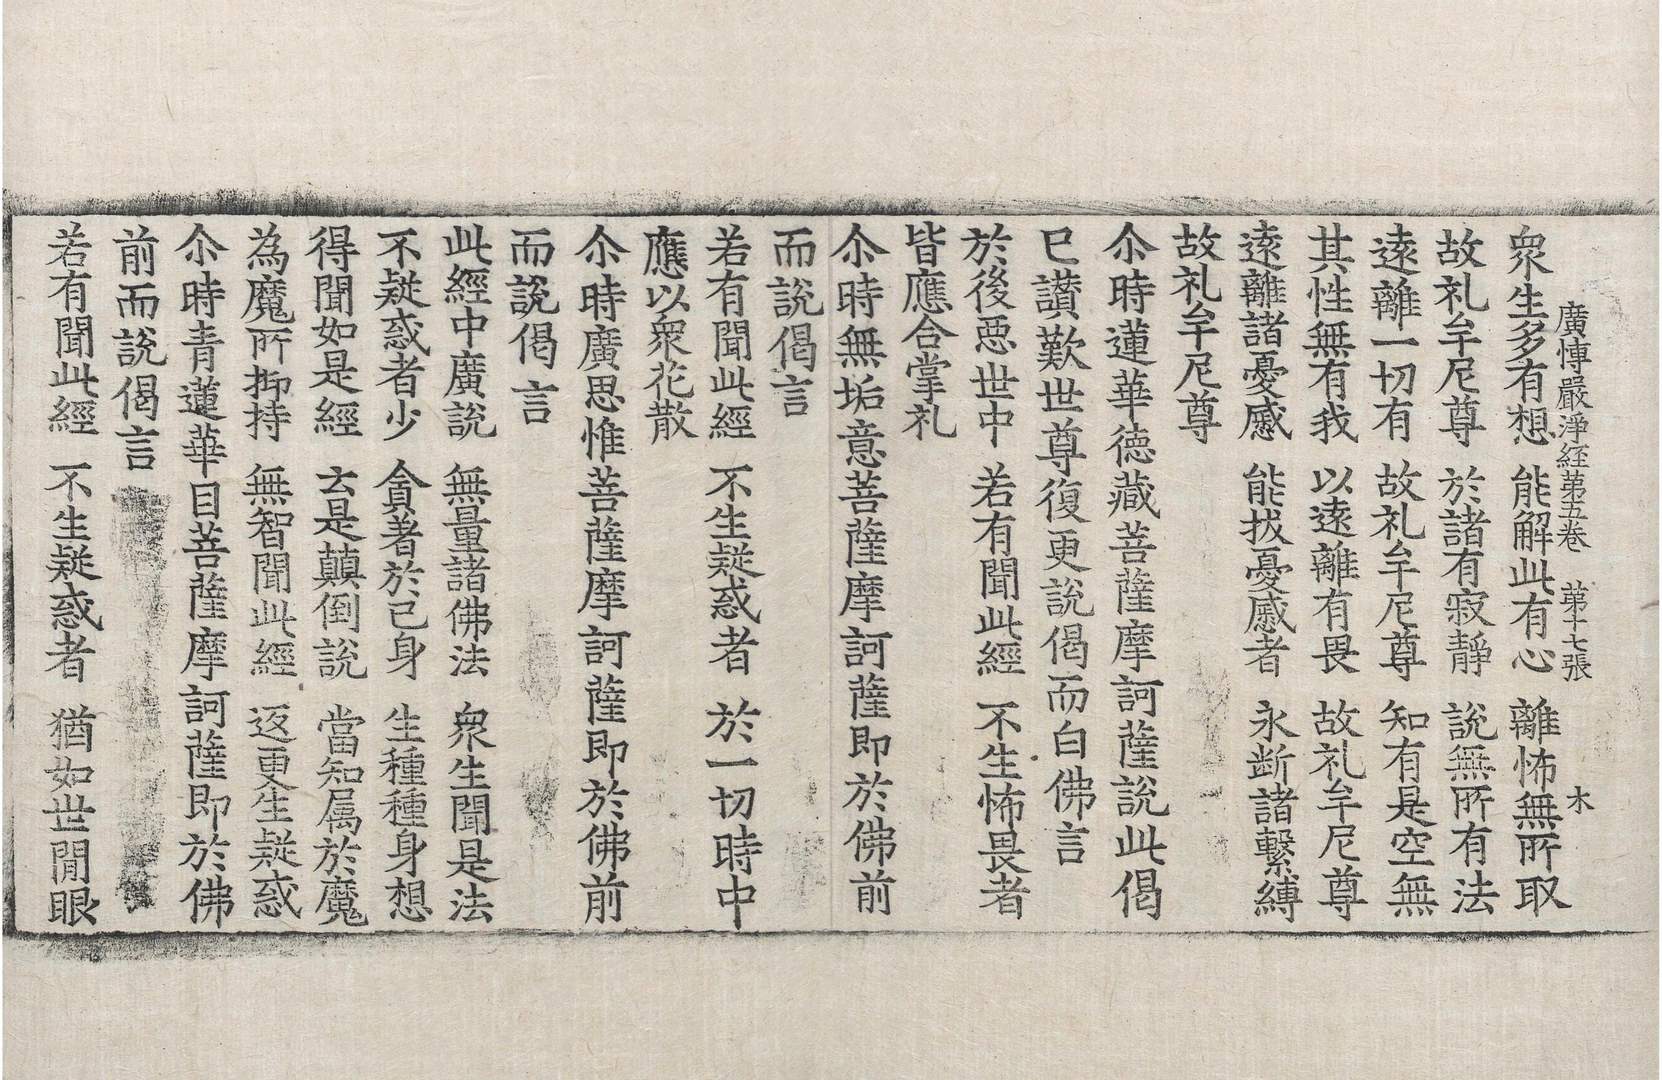 廣博嚴淨経苐五卷　苐十七張　木
衆生多有想　能解此有心　離怖無所取
故礼牟尼尊　於諸有寂靜　說無所有法
遠離一切有　故礼牟尼尊　知有是空無
其性無有我　以遠離有畏　故礼牟尼尊
遠離諸憂慼　能拔憂慼者　永断諸繫縛
故礼牟尼尊
尒時蓮華德藏菩薩摩訶薩說此偈
已讃歎世尊復更說偈而白佛言
於後惡世中　若有聞此經　不生怖畏者
皆應合掌礼
尒時無垢意菩薩摩訶薩即於佛前
而說偈言
若有聞此經　不生疑惑者　於一切時中
應以衆花散
尒時廣思惟菩薩摩訶薩即於佛前
而說偈言
此經中廣說　無量諸佛法　衆生聞是法
不疑惑者少　貪著於己身　生種種身想
得聞如是經　玄是顛倒說　當知属於魔
為魔所抑持　無智聞此經　返更生疑惑
尒時青蓮華目菩薩摩訶薩即於佛
前而說偈言
若有聞此經　不生疑惑者　猶如世間眼